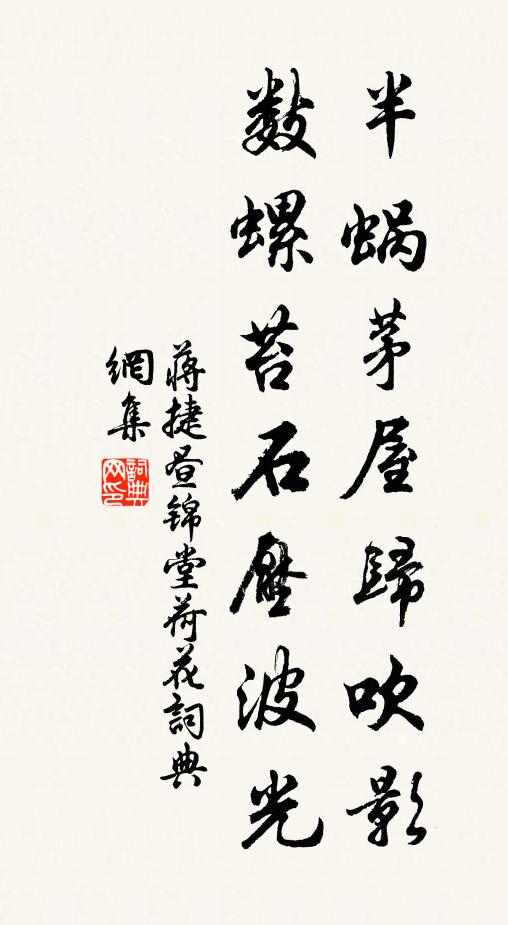 半蝸茅屋歸吹影
數螺苔石壓波光
蔣捷昼锦堂荷花詞典
網集
詞典网印